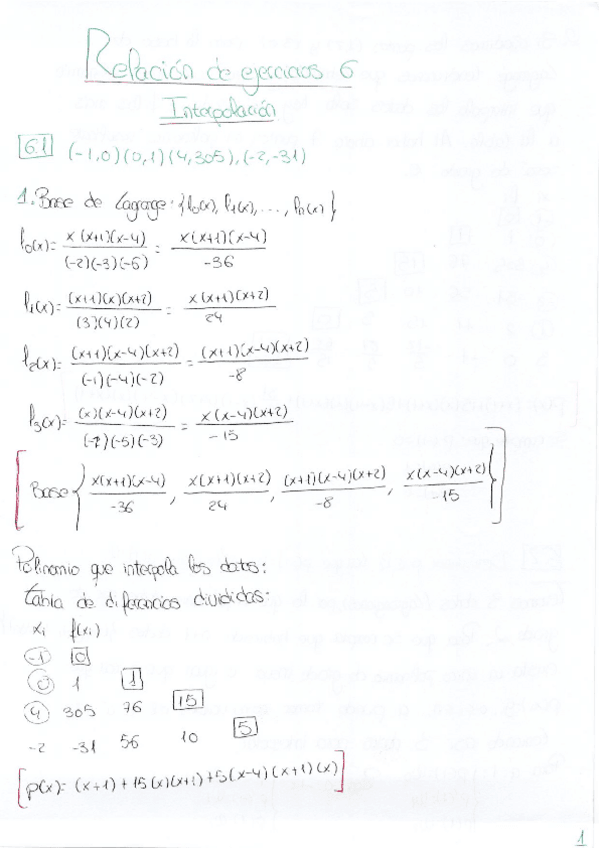 Relación de ejercicios 6
Interpolación
6.1 (-1,0)(0,1)(4,305),(-2,-31)
1. Base de Lagrage: {l₀(x), l₁(x), ..., lₙ(x)}
l₀(x)= x(x+1)(x-4)/(-2)(-3)(-6) = x(x+1)(x-4)/-36
l₁(x)= (x+1)(x)(x+2)/(3)(4)(2) = x(x+1)(x+2)/24
l₂(x)= (x+1)(x-4)(x+2)/(-1)(-4)(-2) = (x+1)(x-4)(x+2)/-8
l₃(x)= (x)(x-4)(x+2)/(-1)(-5)(-3) = x(x-4)(x+2)/-15
[Base {x(x+1)(x-4)/-36, x(x+1)(x+2)/24, (x+1)(x-4)(x+2)/-8, x(x-4)(x+2)/-15}]
Polinomio que interpola los datos:
Tabla de diferencias divididas:
xᵢ f(xᵢ)
-1 0
0 1 1
4 305 76 15
-2 -31 56 10 5
[p(x)= (x+1)+15(x)(x+1)+5(x-4)(x+1)(x)]
1